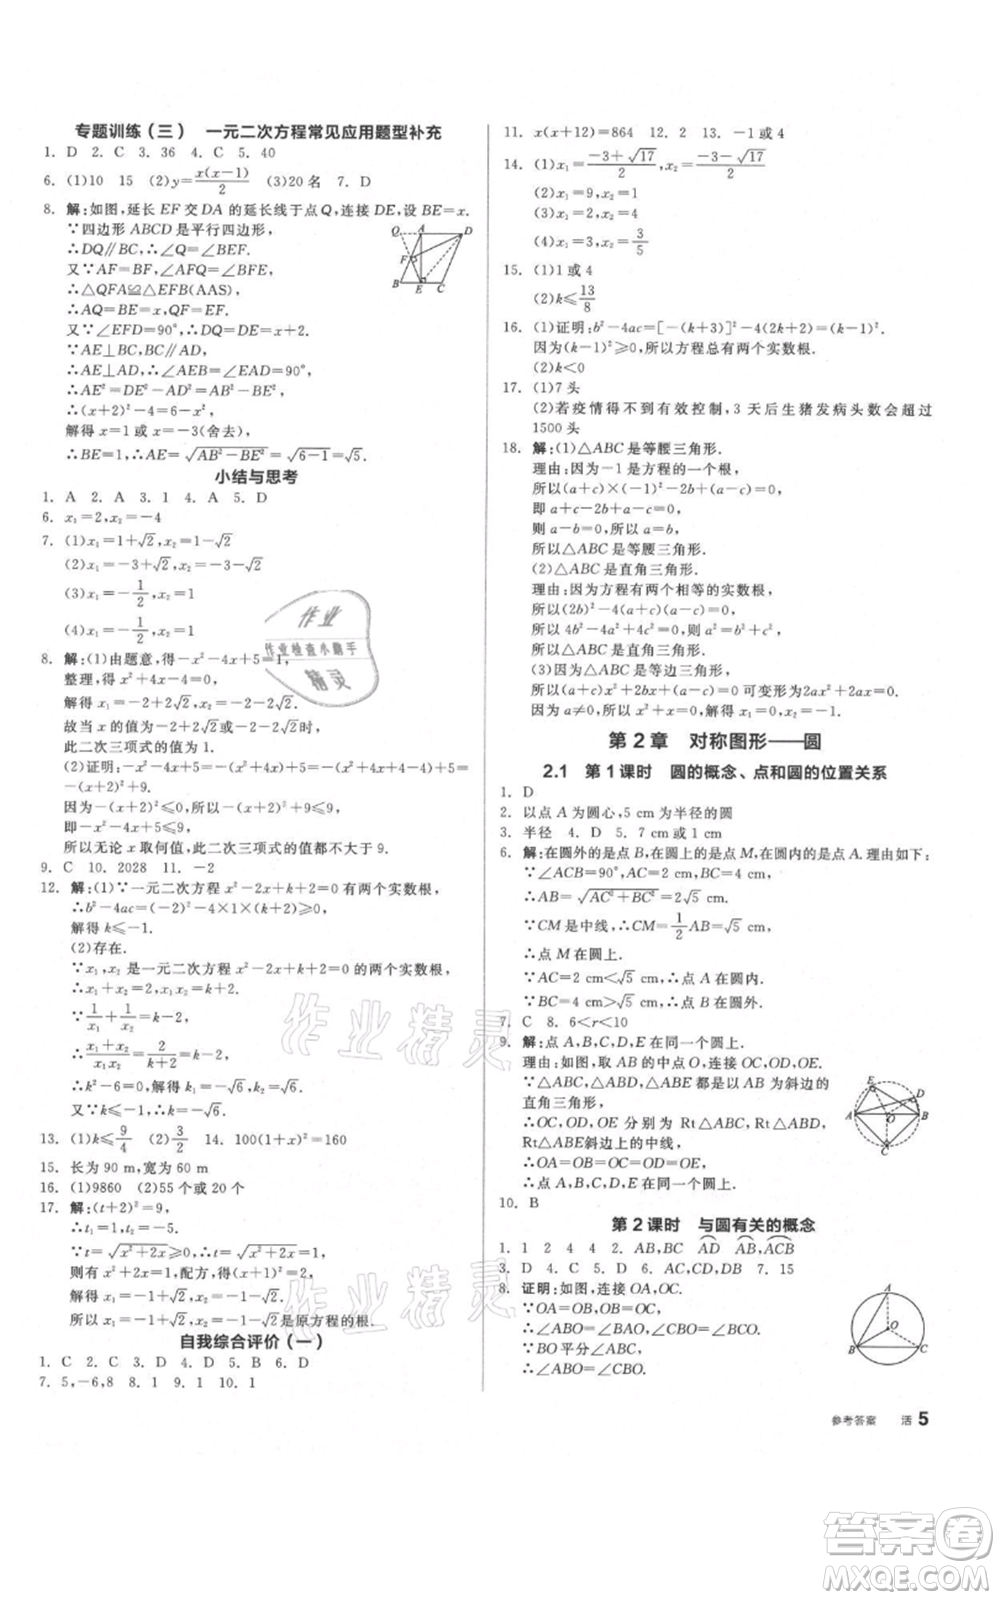 专题训练(三) 一元二次方程常见应用题型补充
1. D 2. C 3. 36 4. C 5. 40
6. (1)10 15 (2)y=x(x-1)/2 (3)20名 7. D
8. 解:如图,延长EF交DA的延长线于点Q,连接DE,设BE=x.
∵四边形ABCD是平行四边形,
∴DQ∥BC,∴∠Q=∠BEF.
又∵AF=BF,∠AFQ=∠BFE,
∴△QFA≌△EFB(AAS),
∴AQ=BE=x,QF=EF.
又∵∠EFD=90°,∴DQ=DE=x+2.
∵AE⊥BC,BC∥AD,
∴AE⊥AD,∴∠AEB=∠EAD=90°,
∴AE²=DE²-AD²=AB²-BE²,
∴(x+2)²-4=6-x²,
解得x=1或x=-3(舍去),
∴BE=1,∴AE=√(AB²-BE²)=√(6-1)=√5.
Q A D F B E C
小结与思考
1. A 2. A 3. 1 4. A 5. D
6. x₁=2,x₂=-4
7. (1)x₁=1+√2,x₂=1-√2
(2)x₁=-3+√2,x₂=-3-√2
(3)x₁=-1/2,x₂=1
(4)x₁=-1/2,x₂=1
8. 解:(1)由题意,得-x²-4x+5=1,
整理,得x²+4x-4=0,
解得x₁=-2+2√2,x₂=-2-2√2,
故当x的值为-2+2√2或-2-2√2时,
此二次三项式的值为1.
(2)证明:-x²-4x+5=-(x²+4x+4-4)+5=
-(x+2)²+9.
因为-(x+2)²≤0,所以-(x+2)²+9≤9,
即-x²-4x+5≤9,
所以无论x取何值,此二次三项式的值都不大于9.
9. C 10. 2028 11. -2
12. 解:(1)∵一元二次方程x²-2x+k+2=0有两个实数根,
∴b²-4ac=(-2)²-4×1×(k+2)≥0,
解得k≤-1.
(2)存在.
∵x₁,x₂是一元二次方程x²-2x+k+2=0的两个实数根,
∴x₁+x₂=2,x₁x₂=k+2.
∵1/x₁+1/x₂=k-2,
∴(x₁+x₂)/(x₁x₂)=2/(k+2)=k-2,
∴k²-6=0,解得k₁=-√6,k₂=√6.
又∵k≤-1,∴k=-√6.
13. (1)k≤9/4 (2)3/2 14. 100(1+x)²=160
15. 长为90 m,宽为60 m
16. (1)9860 (2)55个或20个
17. 解:(t+2)²=9,
∴t₁=1,t₂=-5.
∵t=√(x²+2x)≥0,∴t=√(x²+2x)=1,
则有x²+2x=1,配方,得(x+1)²=2,
解得x₁=-1+√2,x₂=-1-√2,
经检验x₁=-1+√2,x₂=-1-√2是原方程的根.
自我综合评价(一)
1. C 2. C 3. D 4. D 5. B 6. D
7. 5,-6,8 8. 1 9. 1 10. 1
11. x(x+12)=864 12. 2 13. -1或4
14. (1)x₁=(-3+√17)/2,x₂=(-3-√17)/2
(2)x₁=9,x₂=2
(3)x₁=4,x₂=2
(4)x₁=3,x₂=3/5
15. (1)1或4
(2)k≤13/8
16. (1)证明:b²-4ac=[-(k+3)]²-4(2k+2)=(k-1)².
因为(k-1)²≥0,所以方程总有两个实数根.
(2)k<0
17. (1)7头
(2)若疫情得不到有效控制,3天后生猪发病头数会超过
1500头
18. 解:(1)△ABC是等腰三角形.
理由:因为-1是方程的一个根,
所以(a+c)×(-1)²-2b+(a-c)=0,
即a+c-2b+a-c=0,
则a-b=0,所以a=b,
所以△ABC是等腰三角形.
(2)△ABC是直角三角形.
理由:因为方程有两个相等的实数根,
所以(2b)²-4(a+c)(a-c)=0,
所以4b²-4a²+4c²=0,所以a²=b²+c²,
所以△ABC是直角三角形.
(3)因为△ABC是等边三角形,
所以(a+c)x²+2bx+(a-c)=0可变形为2ax²+2ax=0.
因为a≠0,所以x²+x=0,解得x₁=0,x₂=-1.
第2章 对称图形——圆
2.1 第1课时 圆的概念、点和圆的位置关系
1. D
2. 以点A为圆心,5 cm为半径的圆
3. 半径 4. D 5. 7 cm或1 cm
6. 解:在圆外的是点B,在圆上的是点M,在圆内的是点A.理由如下:
∵∠ACB=90°,AC=2 cm,BC=4 cm,
∴AB=√(AC²+BC²)=2√5 cm.
∵CM是中线,∴CM=1/2AB=√5 cm,
∴点M在圆上.
∵AC=2 cm<√5 cm,∴点A在圆内.
∵BC=4 cm>√5 cm,∴点B在圆外.
7. C 8. 6<r<10
9. 解:点A,B,C,D,E在同一个圆上.
理由:如图,取AB的中点O,连接OC,OD,OE.
∵△ABC,△ABD,△ABE都是以AB为斜边的
直角三角形,
∴OC,OD,OE分别为Rt△ABC,Rt△ABD,
Rt△ABE斜边上的中线,
∴OA=OB=OC=OD=OE,
∴点A,B,C,D,E在同一个圆上.
E D A O B C
10. B
第2课时 与圆有关的概念
1. 1 2 4 4 2. AB,BC AD AB,ACB
3. D 4. C 5. D 6. AC,CD,DB 7. 15
8. 证明:如图,连接OA,OC.
∵OA=OB=OC,
∴∠ABO=∠BAO,∠CBO=∠BCO.
∵BO平分∠ABC,
∴∠ABO=∠CBO,∴∠BAO=∠BCO.
A O B C
参考答案 活 5
作业
作业检查小助手
精灵
作业精灵
作业精灵
答案卷
MXEQE.COM